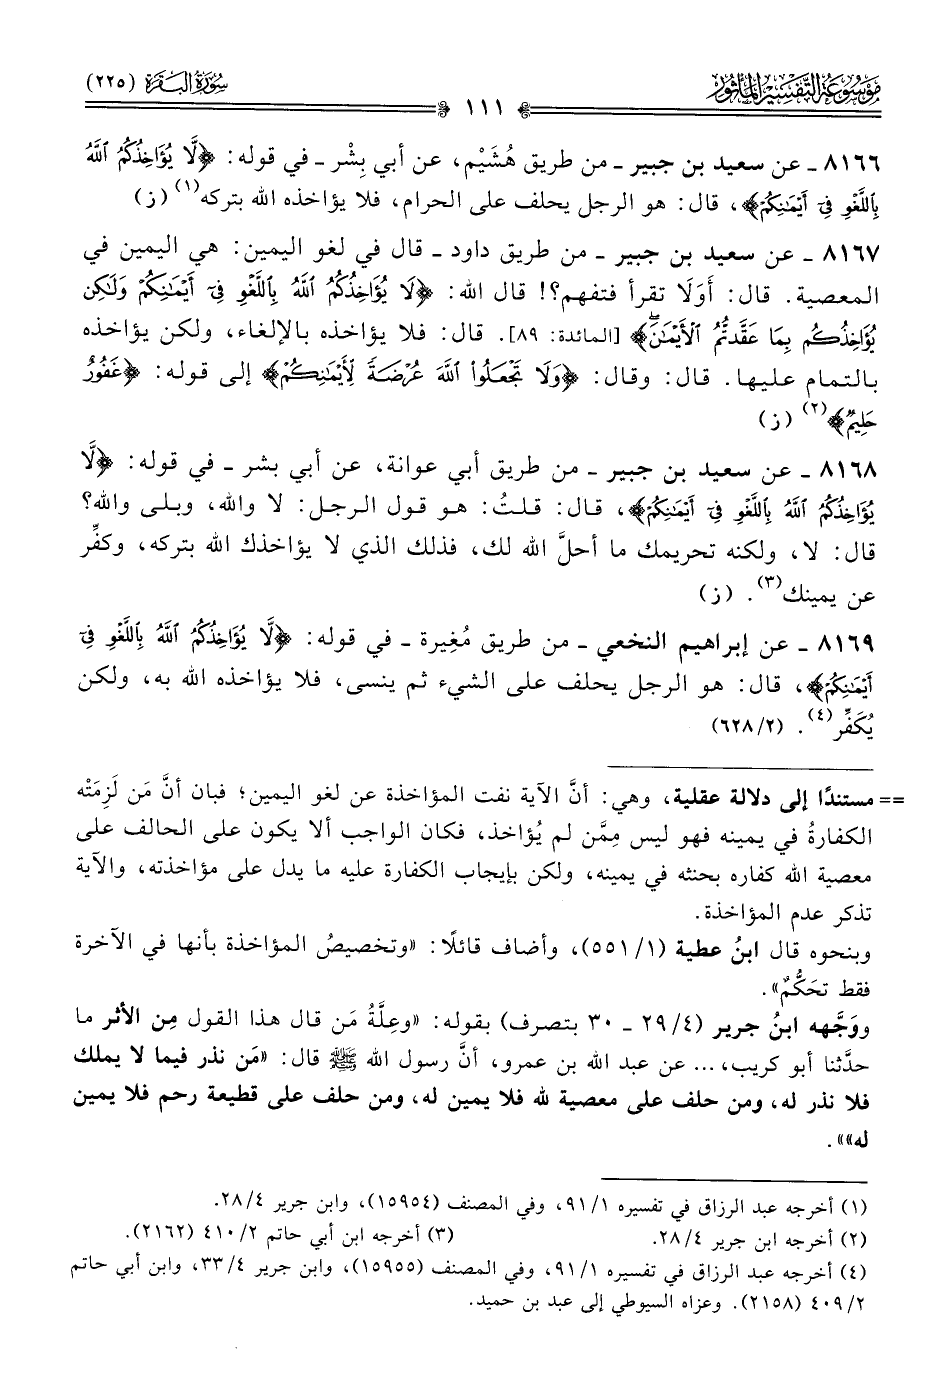 مَوْسُوعَةُ التَّفْسِيرِ المَأْثُور
١١١
سُورَةُ البَقَرَة (٢٢٥)
٨١٦٦ ـ عن سعيد بن جبير ـ من طريق هُشَيْم، عن أبي بِشْر ـ في قوله: ﴿لَّا يُؤَاخِذُكُمُ ٱللَّهُ
بِٱللَّغْوِ فِىٓ أَيْمَٰنِكُمْ﴾، قال: هو الرجل يحلف على الحرام، فلا يؤاخذه الله بتركه(١) (ز)
٨١٦٧ ـ عن سعيد بن جبير ـ من طريق داود ـ قال في لغو اليمين: هي اليمين في
المعصية. قال: أَوَلَا تقرأ فتفهم؟! قال الله: ﴿لَا يُؤَاخِذُكُمُ ٱللَّهُ بِٱللَّغْوِ فِىٓ أَيْمَٰنِكُمْ وَلَٰكِن
يُؤَاخِذُكُم بِمَا عَقَّدتُّمُ ٱلْأَيْمَٰنَۖ﴾ [المائدة: ٨٩]. قال: فلا يؤاخذه بالإلغاء، ولكن يؤاخذه
بالتمام عليها. قال: وقال: ﴿وَلَا تَجْعَلُوا۟ ٱللَّهَ عُرْضَةً لِّأَيْمَٰنِكُمْ﴾ إلى قوله: ﴿غَفُورٌ
حَلِيمٌ﴾(٢) (ز)
٨١٦٨ ـ عن سعيد بن جبير ـ من طريق أبي عوانة، عن أبي بشر ـ في قوله: ﴿لَّا
يُؤَاخِذُكُمُ ٱللَّهُ بِٱللَّغْوِ فِىٓ أَيْمَٰنِكُمْ﴾، قال: قلتُ: هو قول الرجل: لا والله، وبلى والله؟
قال: لا، ولكنه تحريمك ما أحلَّ الله لك، فذلك الذي لا يؤاخذك الله بتركه، وكفِّر
عن يمينك(٣). (ز)
٨١٦٩ ـ عن إبراهيم النخعي ـ من طريق مُغِيرة ـ في قوله: ﴿لَّا يُؤَاخِذُكُمُ ٱللَّهُ بِٱللَّغْوِ فِىٓ
أَيْمَٰنِكُمْ﴾، قال: هو الرجل يحلف على الشيء ثم ينسى، فلا يؤاخذه الله به، ولكن
يُكَفِّر(٤). (٦٢٨/٢)
== مستندًا إلى دلالة عقلية، وهي: أنَّ الآية نفت المؤاخذة عن لغو اليمين؛ فبان أنَّ مَن لَزِمَتْه
الكفارةُ في يمينه فهو ليس مِمَّن لم يُؤاخذ، فكان الواجب ألا يكون على الحالف على
معصية الله كفاره بحنثه في يمينه، ولكن بإيجاب الكفارة عليه ما يدل على مؤاخذته، والآية
تذكر عدم المؤاخذة.
وبنحوه قال ابنُ عطية (٥٥١/١)، وأضاف قائلًا: «وتخصيصُ المؤاخذة بأنها في الآخرة
فقط تحَكُّمٌ».
ووَجَّهه ابنُ جرير (٢٩/٤ ـ ٣٠ بتصرف) بقوله: «وعِلَّةُ مَن قال هذا القول مِن الأثر ما
حدَّثنا أبو كريب، ... عن عبد الله بن عمرو، أنَّ رسول الله ﷺ قال: «مَن نذر فيما لا يملك
فلا نذر له، ومن حلف على معصية لله فلا يمين له، ومن حلف على قطيعة رحم فلا يمين
له»».
(١) أخرجه عبد الرزاق في تفسيره ٩١/١، وفي المصنف (١٥٩٥٤)، وابن جرير ٢٨/٤.
(٢) أخرجه ابن جرير ٢٨/٤. (٣) أخرجه ابن أبي حاتم ٤١٠/٢ (٢١٦٢).
(٤) أخرجه عبد الرزاق في تفسيره ٩١/١، وفي المصنف (١٥٩٥٥)، وابن جرير ٣٣/٤، وابن أبي حاتم
٤٠٩/٢ (٢١٥٨). وعزاه السيوطي إلى عبد بن حميد.